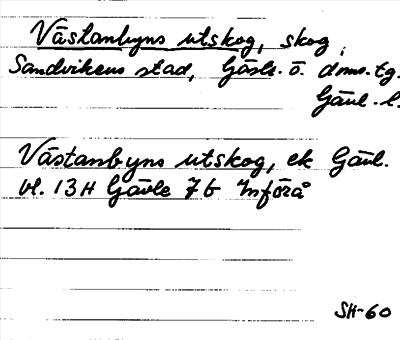 Västanbyns utskog, skog,
Sandvikens stad, Gästr. ö. doms. tg.
Gävl. l.
Västanbyns utskog, ek Gävl.
bl. 13H Gävle 7b Införå
SH-60